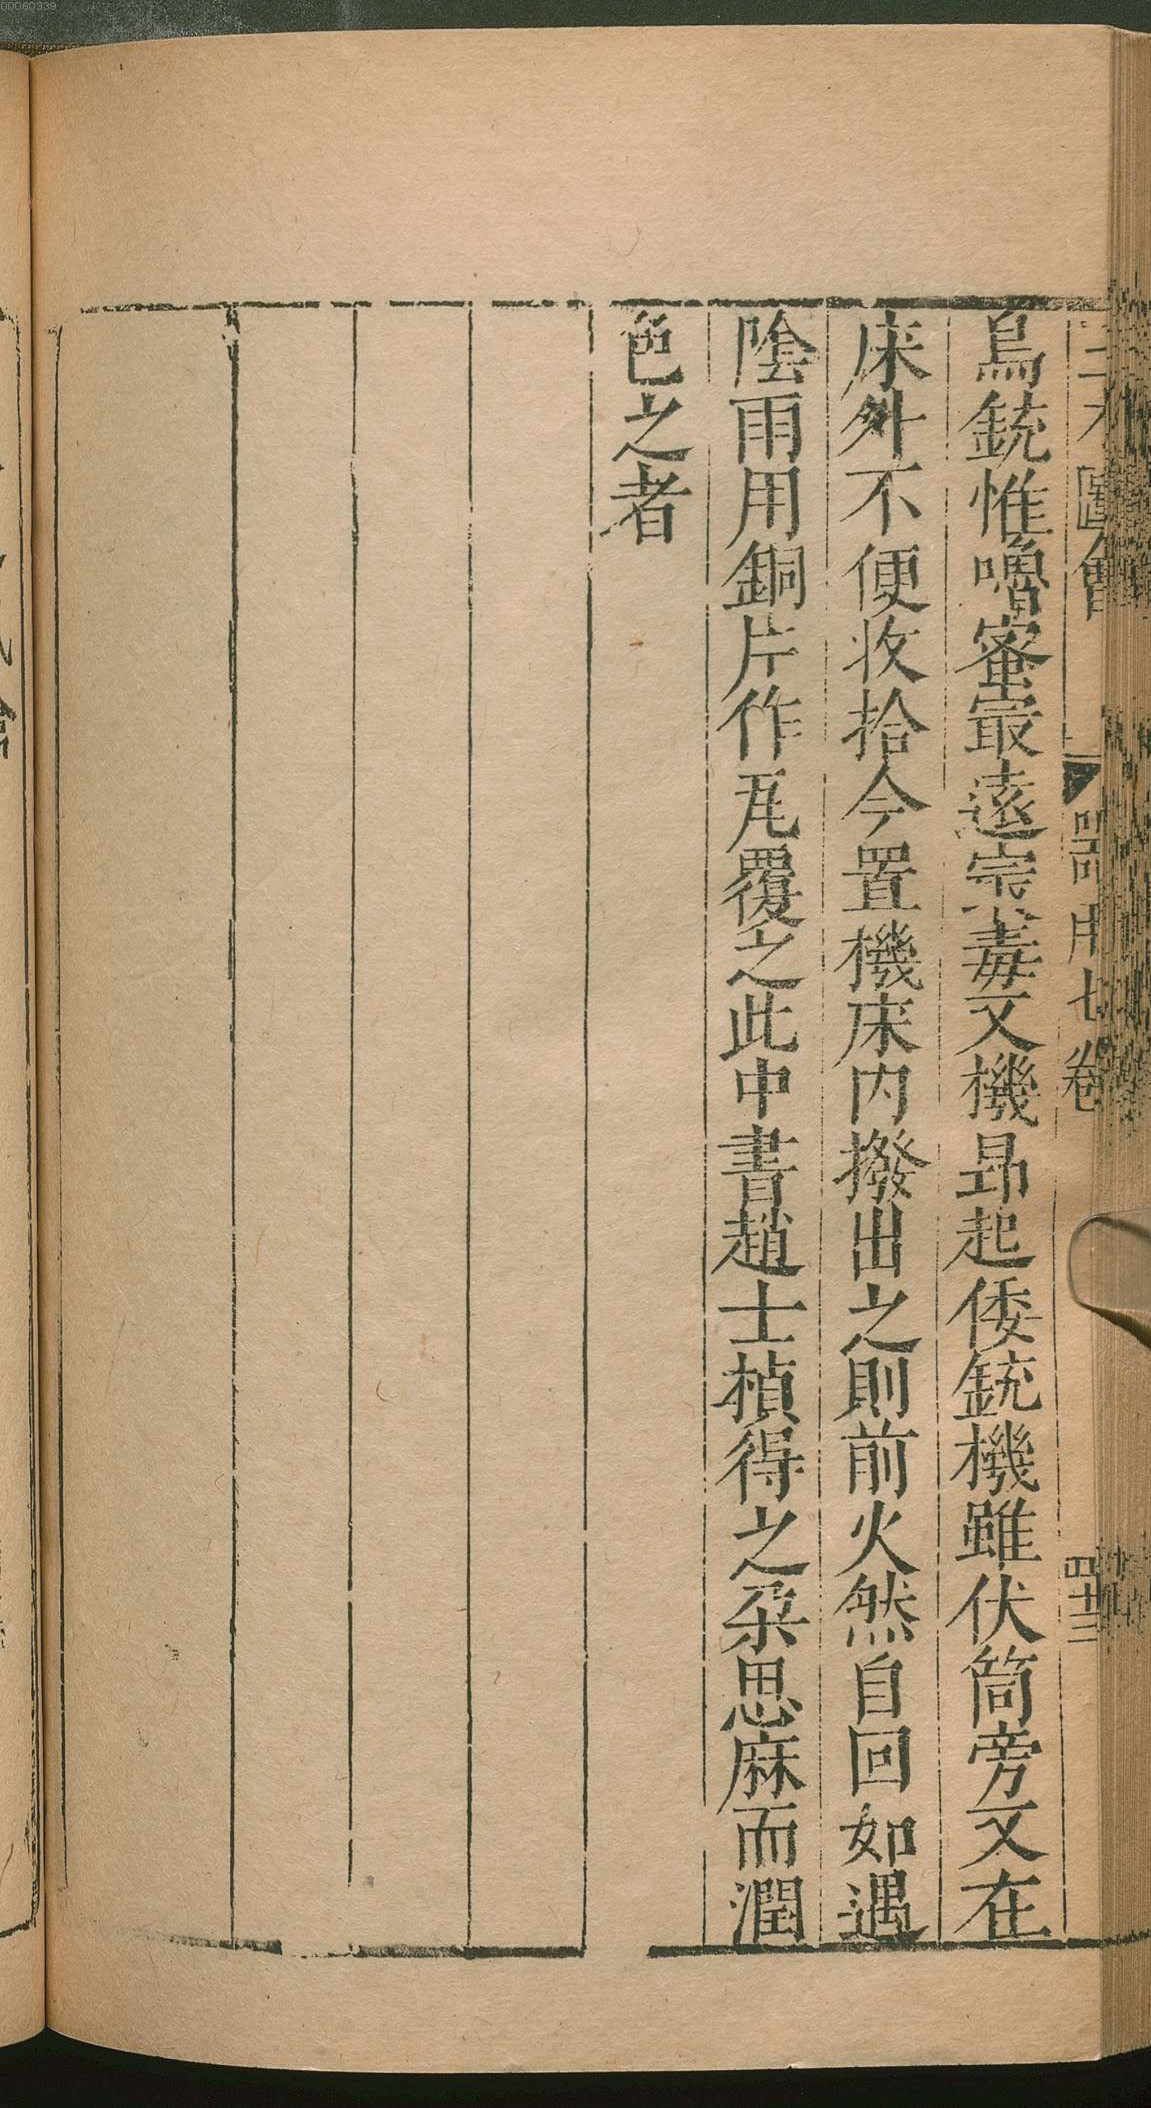 00060339
三才圖會 器用七卷 四十三
鳥銃惟嚕蜜最遠㝡毒又機昻起倭銃機雖伏筒旁又在
床外不便收拾今置機床内撥出之則前火然自回如遇
陰雨用銅片作瓦覆之此中書趙士楨得之朶思麻而潤
色之者